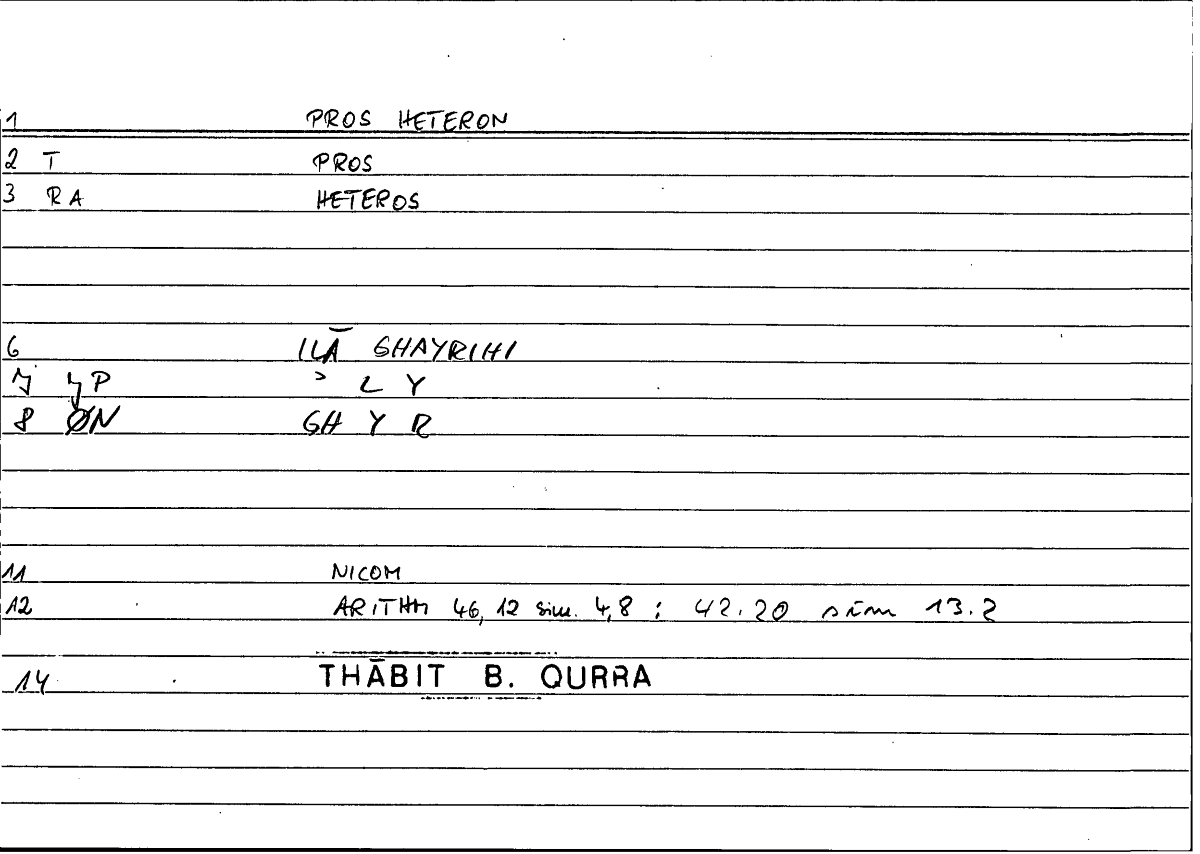 1 PROS HETERON
2 T PROS
3 RA HETEROS
6 ILĀ GHAYRIHI
7 YP ʾ L Y
8 ØN GH Y R
11 NICOM
12 ARITHM 46, 12 sim. 4, 8 ; 42.20 sim 13.2
14 THĀBIT B. QURRA